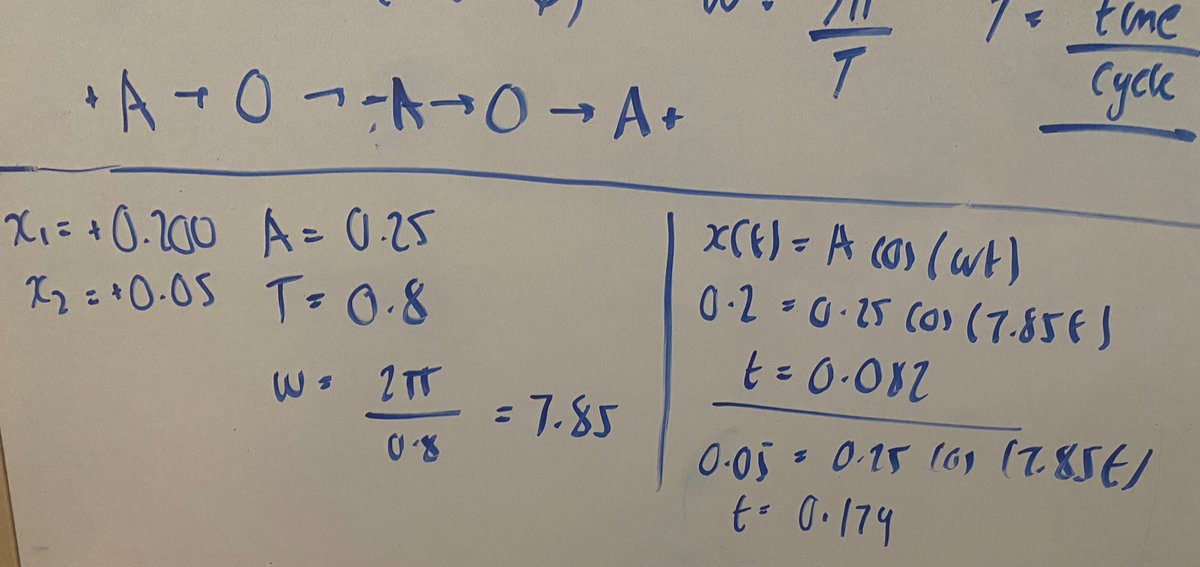 T = time
T cycle
+A → 0 → -A → 0 → A+
x₁ = +0.200 A = 0.25
x₂ = +0.05 T = 0.8
ω = 2π/0.8 = 7.85
x(t) = A cos (ωt)
0.2 = 0.25 cos (7.85t)
t = 0.082
0.05 = 0.25 cos (7.85t)
t = 0.174